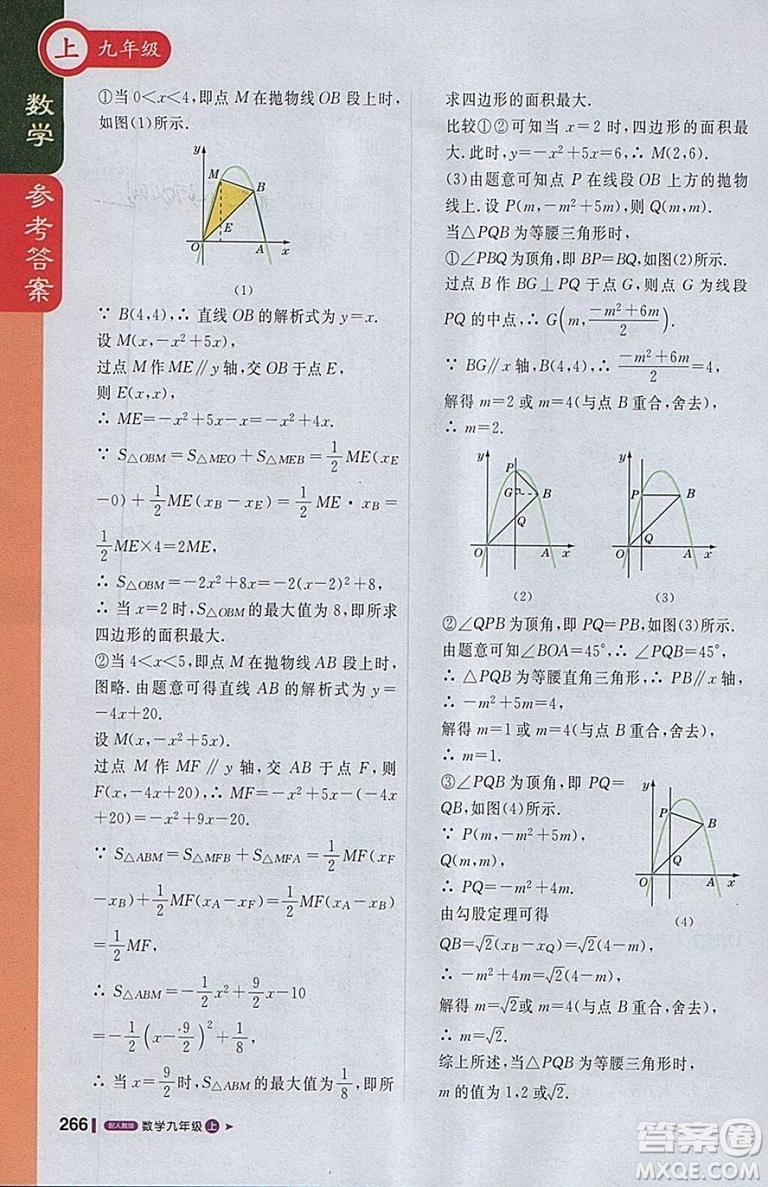 上 九年级
数学
参考答案
①当 0<x<4,即点 M 在抛物线 OB 段上时,
如图(1)所示.
y
M
B
E
O
A
x
(1)
∵ B(4,4),∴ 直线 OB 的解析式为 y=x.
设 M(x,-x²+5x),
过点 M 作 ME∥y 轴,交 OB 于点 E,
则 E(x,x),
∴ ME=-x²+5x-x=-x²+4x.
∵ S△OBM=S△MEO+S△MEB=1/2 ME(xE
-0)+1/2 ME(xB-xE)=1/2 ME·xB=
1/2 ME×4=2ME,
∴ S△OBM=-2x²+8x=-2(x-2)²+8,
∴ 当 x=2 时,S△OBM的最大值为 8,即所求
四边形的面积最大.
②当 4<x<5,即点 M 在抛物线 AB 段上时,
图略.由题意可得直线 AB 的解析式为 y=
-4x+20.
设 M(x,-x²+5x).
过点 M 作 MF∥y 轴,交 AB 于点 F,则
F(x,-4x+20),∴ MF=-x²+5x-(-4x
+20)=-x²+9x-20.
∵ S△ABM=S△MFB+S△MFA=1/2 MF(xF
-xB)+1/2 MF(xA-xF)=1/2 MF(xA-xB)=
1/2 MF,
∴ S△ABM=-1/2 x²+9/2 x-10
=-1/2(x-9/2)²+1/8,
∴ 当 x=9/2时,S△ABM的最大值为1/8,即所
266 配人教版 数学九年级 上
求四边形的面积最大.
比较①②可知当 x=2 时,四边形的面积最
大.此时,-x²+5x=6,∴ M(2,6).
(3)由题意可知点 P 在线段 OB 上方的抛物
线上.设 P(m,-m²+5m),则 Q(m,m).
当△PQB 为等腰三角形时,
①∠PBQ 为顶角,即 BP=BQ,如图(2)所示.
过点 B 作 BG⊥PQ 于点 G,则点 G 为线段
PQ 的中点,∴ G(m,(-m²+6m)/2).
∵ BG∥x 轴,B(4,4),∴ (-m²+6m)/2=4,
解得 m=2 或 m=4(与点 B 重合,舍去),
∴ m=2.
y
P
G
B
Q
O
A
x
(2)
y
P
B
O
Q
A
x
(3)
②∠QPB 为顶角,即 PQ=PB,如图(3)所示.
由题意可知∠BOA=45°,∴ ∠PQB=45°,
∴ △PQB 为等腰直角三角形,∴ PB∥x 轴,
∴ -m²+5m=4,
解得 m=1 或 m=4(与点 B 重合,舍去),
∴ m=1.
③∠PQB 为顶角,即 PQ=
QB,如图(4)所示.
∵ P(m,-m²+5m),
Q(m,m),
∴ PQ=-m²+4m.
由勾股定理可得
y
P
B
Q
O
A
x
(4)
QB=√2(xB-xQ)=√2(4-m),
∴ -m²+4m=√2(4-m),
解得 m=√2或 m=4(与点 B 重合,舍去),
∴ m=√2.
综上所述,当△PQB 为等腰三角形时,
m 的值为 1,2 或√2.
答案圈
MXQE.COM